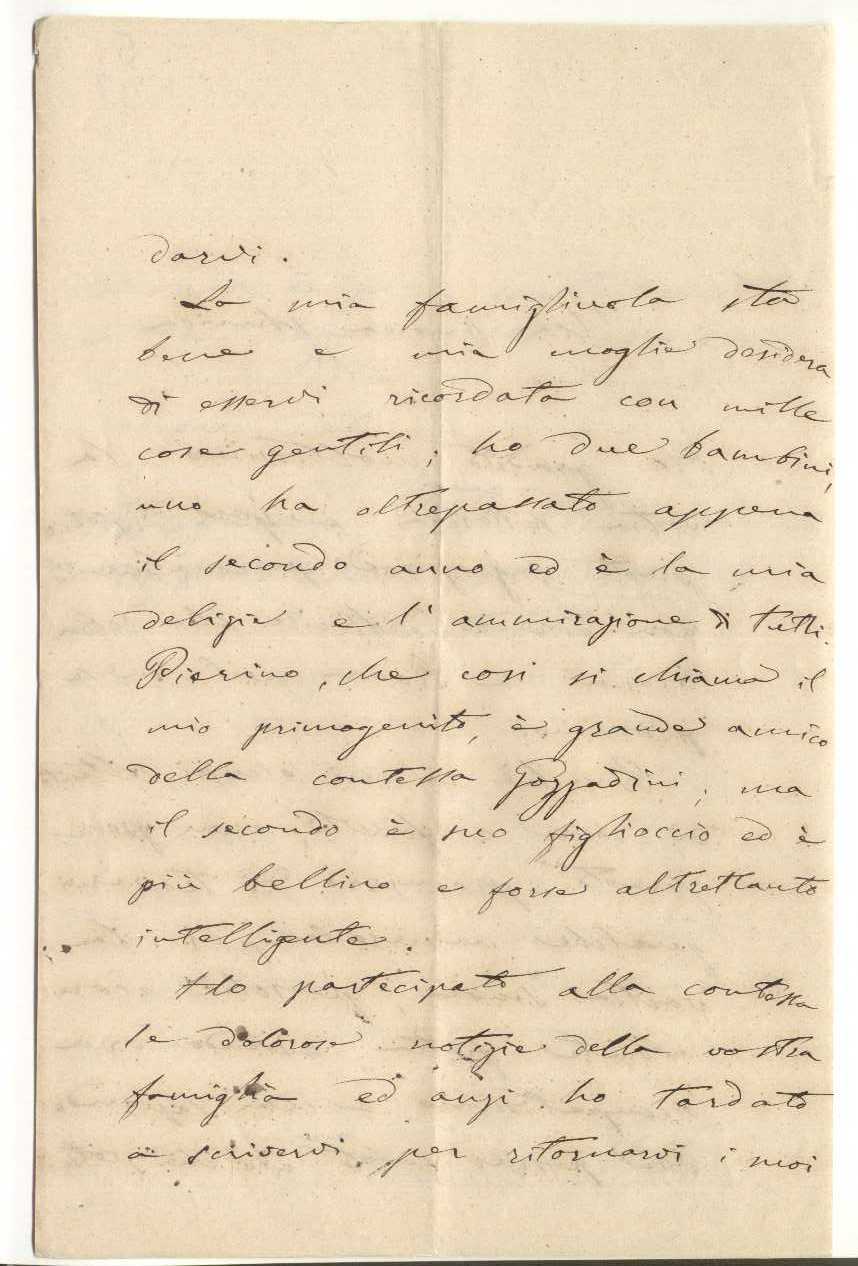 darvi.
La mia famigliuola sta
bene e mia moglie desidera
di esservi ricordata con mille
cose gentili; ho due bambini,
uno ha oltrepassato appena
il secondo anno ed è la mia
delizia e l'ammirazione di tutti.
Pierino, che così si chiama il
mio primogenito, è grande amico
della contessa Gozzadini; ma
il secondo è suo figlioccio ed è
più bellino e forse altrettanto
intelligente.
Ho partecipato alla contessa
le dolorose notizie della vostra
famiglia ed anzi ho tardato
a scrivervi per ritornarvi i suoi